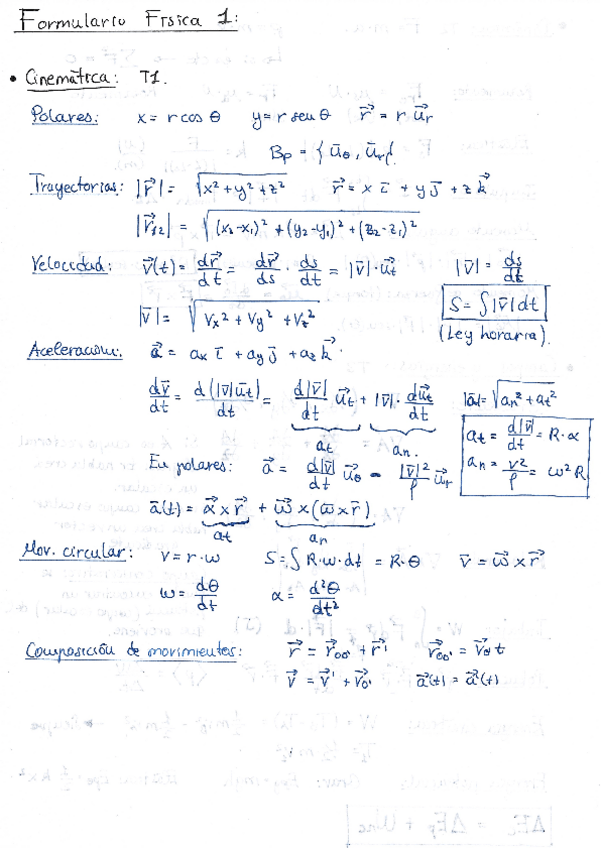 Formulario Física 1:
• Cinemática: T1.
Polares: x = r cos θ y = r sen θ r⃗ = r u⃗r
Bp = { ūθ, ūr }
Trayectorias: |r⃗| = √(x² + y² + z²) r⃗ = x ī + y j̄ + z k⃗
|r⃗12| = √((x2-x1)² + (y2-y1)² + (z2-z1)²)
Velocidad: v⃗(t) = dr⃗/dt = dr⃗/ds · ds/dt = |v̄| · u⃗t |v̄| = ds/dt
|v̄| = √(Vx² + Vy² + Vz²) S = ∫|v̄| dt
(Ley horaria).
Aceleración: a⃗ = ax ī + ay j̄ + az k⃗
dv̄/dt = d(|v̄|ūt)/dt = d|v̄|/dt u⃗t + |v̄| · du⃗t/dt |ā| = √(an² + at²)
at an. at = d|v̄|/dt = R · α
an = v²/ρ = ω² R
En polares: a⃗ = d|v̄|/dt u⃗θ - |v̄|²/ρ u⃗r
a⃗(t) = α⃗ x r⃗ + ω⃗ x (ω̄ x r̄)
at an
Mov. circular: v = r · ω S = ∫ R · ω · dt = R · θ v̄ = ω⃗ x r⃗
ω = dθ/dt α = d²θ/dt²
Composición de movimientos: r⃗ = r⃗oo' + r⃗' r⃗oo' = v⃗o' t
v⃗ = v⃗' + v⃗o' a⃗(t) = a⃗'(t)